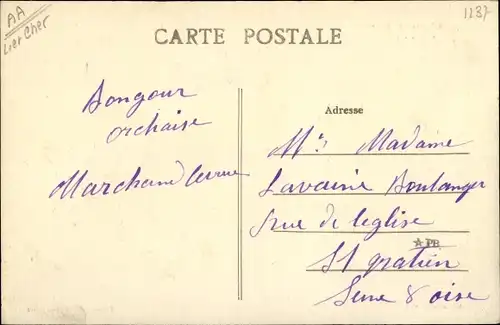 AA
Lier Cher
1237
CARTE POSTALE
Bongour
orchaise
Marchand
Adresse
Mr Madame
Lavaine Boulanger
rue de leglise
★PB
St gratien
Seine & oise